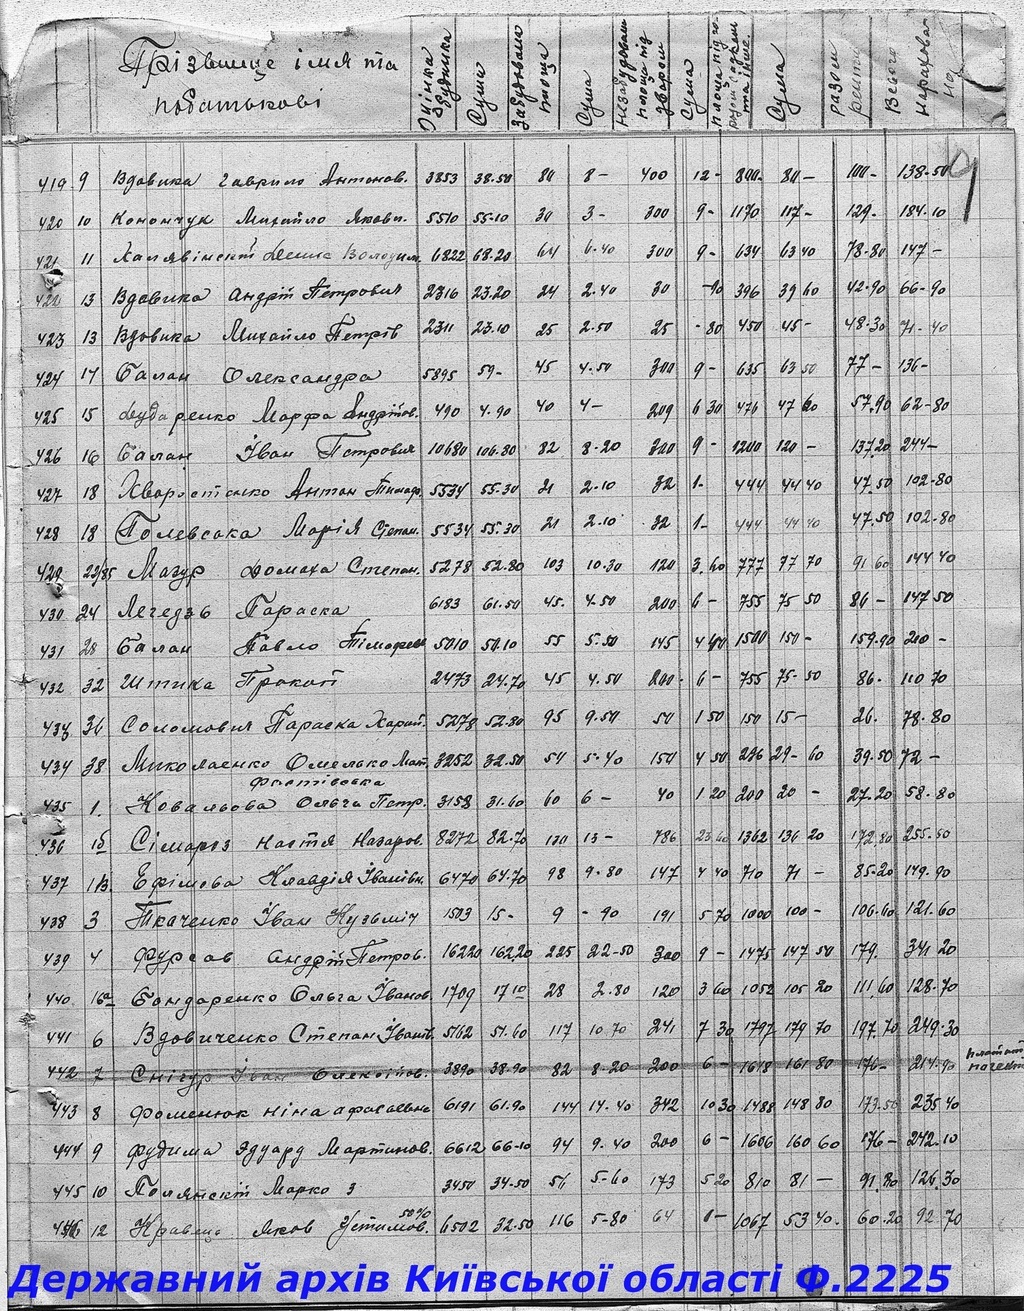 Прізвище імя та
податькові
Оцінка будинка
Сума
Забудована площа
Сума
Незабудована площа під двором
Сума
Сума
разом ренти
Всього нарахова
419 9 Вдовика Гаврило Антонов. 3853 38.50 80 8- 400 12- 800- 80- 100- 138-50
420 10 Конончук Михайло Якови. 5510 55-10 30 3- 300 9- 1170 117- 129- 184-10
421 11 Халявінскій Денис Володим. 6822 68.20 64 6-40 300 9- 634 63 40 78-80 147-
422 13 Вдовика Андрій Петрович 2316 23.20 24 2-40 30 -90 396 39 60 42-90 66-90
423 13 Вдовика Михайло Петрів 2311 23.10 25 2-50 25 -80 450 45- 48-30 71-40
424 14 Балан Олександра 5895 59- 45 4-50 300 9- 635 63 50 77- 136-
425 15 Дударенко Марфа Андріїов. 490 4.90 40 4- 209 6 30 476 47 60 57.90 62-80
426 16 Балан Іван Петрович 10680 106.80 82 8-20 300 9- 1200 120- 137.20 244-
427 18 Хворостенко Антон Тимоф. 5534 55-30 21 2-10 32 1- 444 44 40 47.50 102-80
428 18 Полевська Марія Степан. 5534 55.30 21 2-10 32 1- 444 44 40 47.50 102-80
429 22/85 Мазур Домаха Степан. 5278 52.80 103 10.30 120 3.60 777 77 70 91 60 144 40
430 24 Легедзь Параска 6183 61.50 45. 4.50 200 6- 755 75 50 86- 147 50
431 28 Балан Павло Тімофеев 5010 50.10 55 5.50 145 4 40 1500 150- 159.90 210-
432 32 Штика Прокоп 2473 24.70 45 4.50 200- 6- 755 75-50 86- 110 70
433 36 Соломович Параска Харит. 5278 52.80 95 9.50 50 1 50 150 15- 26. 78.80
434 38 Миколаенко Омелько Мат. 3252 32.50 54 5-40 154 4 50 296 29- 60 39.50 72-
Фастівська
435 1. Ковальова Ольга Петр. 3158 31.60 60 6- 40 1 20 200 20- 27.20 58.80
436 1б Сімароз Настя Назаров. 8272 82.70 130 13- 786 23 60 1362 136 20 172.80 255.50
437 1/3. Ефімова Клавдія Іванівн. 6470 64.70 98 9-80 147 4 40 710 71- 85-20 149.90
438 3 Ткаченко Іван Кузьміч 1503 15- 9 -90 191 5-70 1000 100- 106.60 121.60
439 4 Фурсов Андрій Петров. 16220 162.20 225 22-50 300 9- 1475 147 50 179. 341 20
440 16а Бондаренко Ольга Іванов. 1709 17 10 28 2.80 120 3 60 1052 105 20 111.60 128.70
441 6 Вдовиченко Степан Іванів. 5162 51.60 117 10.70 241 7 30 1797 179 70 197.70 249.30
442 7 Снігур Іван Олексіїов. 3890 38.90 82 8-20 200 6- 1618 161 80 176- 214.90
443 8 Фоменюк Ніна Афанасьевна 6191 61.90 144 14.40 342 10 30 1488 148 80 173.50 235 40
444 9 Фудима Эдуард Мартинов. 6612 66-10 94 9.40 200 6- 1606 160 60 176- 242.10
445 10 Полянскій Марко З 3450 34-50 56 5-60 173 5 20 810 81- 91.80 126.30
50%
446 12 Кравець Яков Устимов. 6502 32.50 116 5-80 64 1- 1067 53 40. 60.20 92.70
Державний архів Київської області Ф.2225